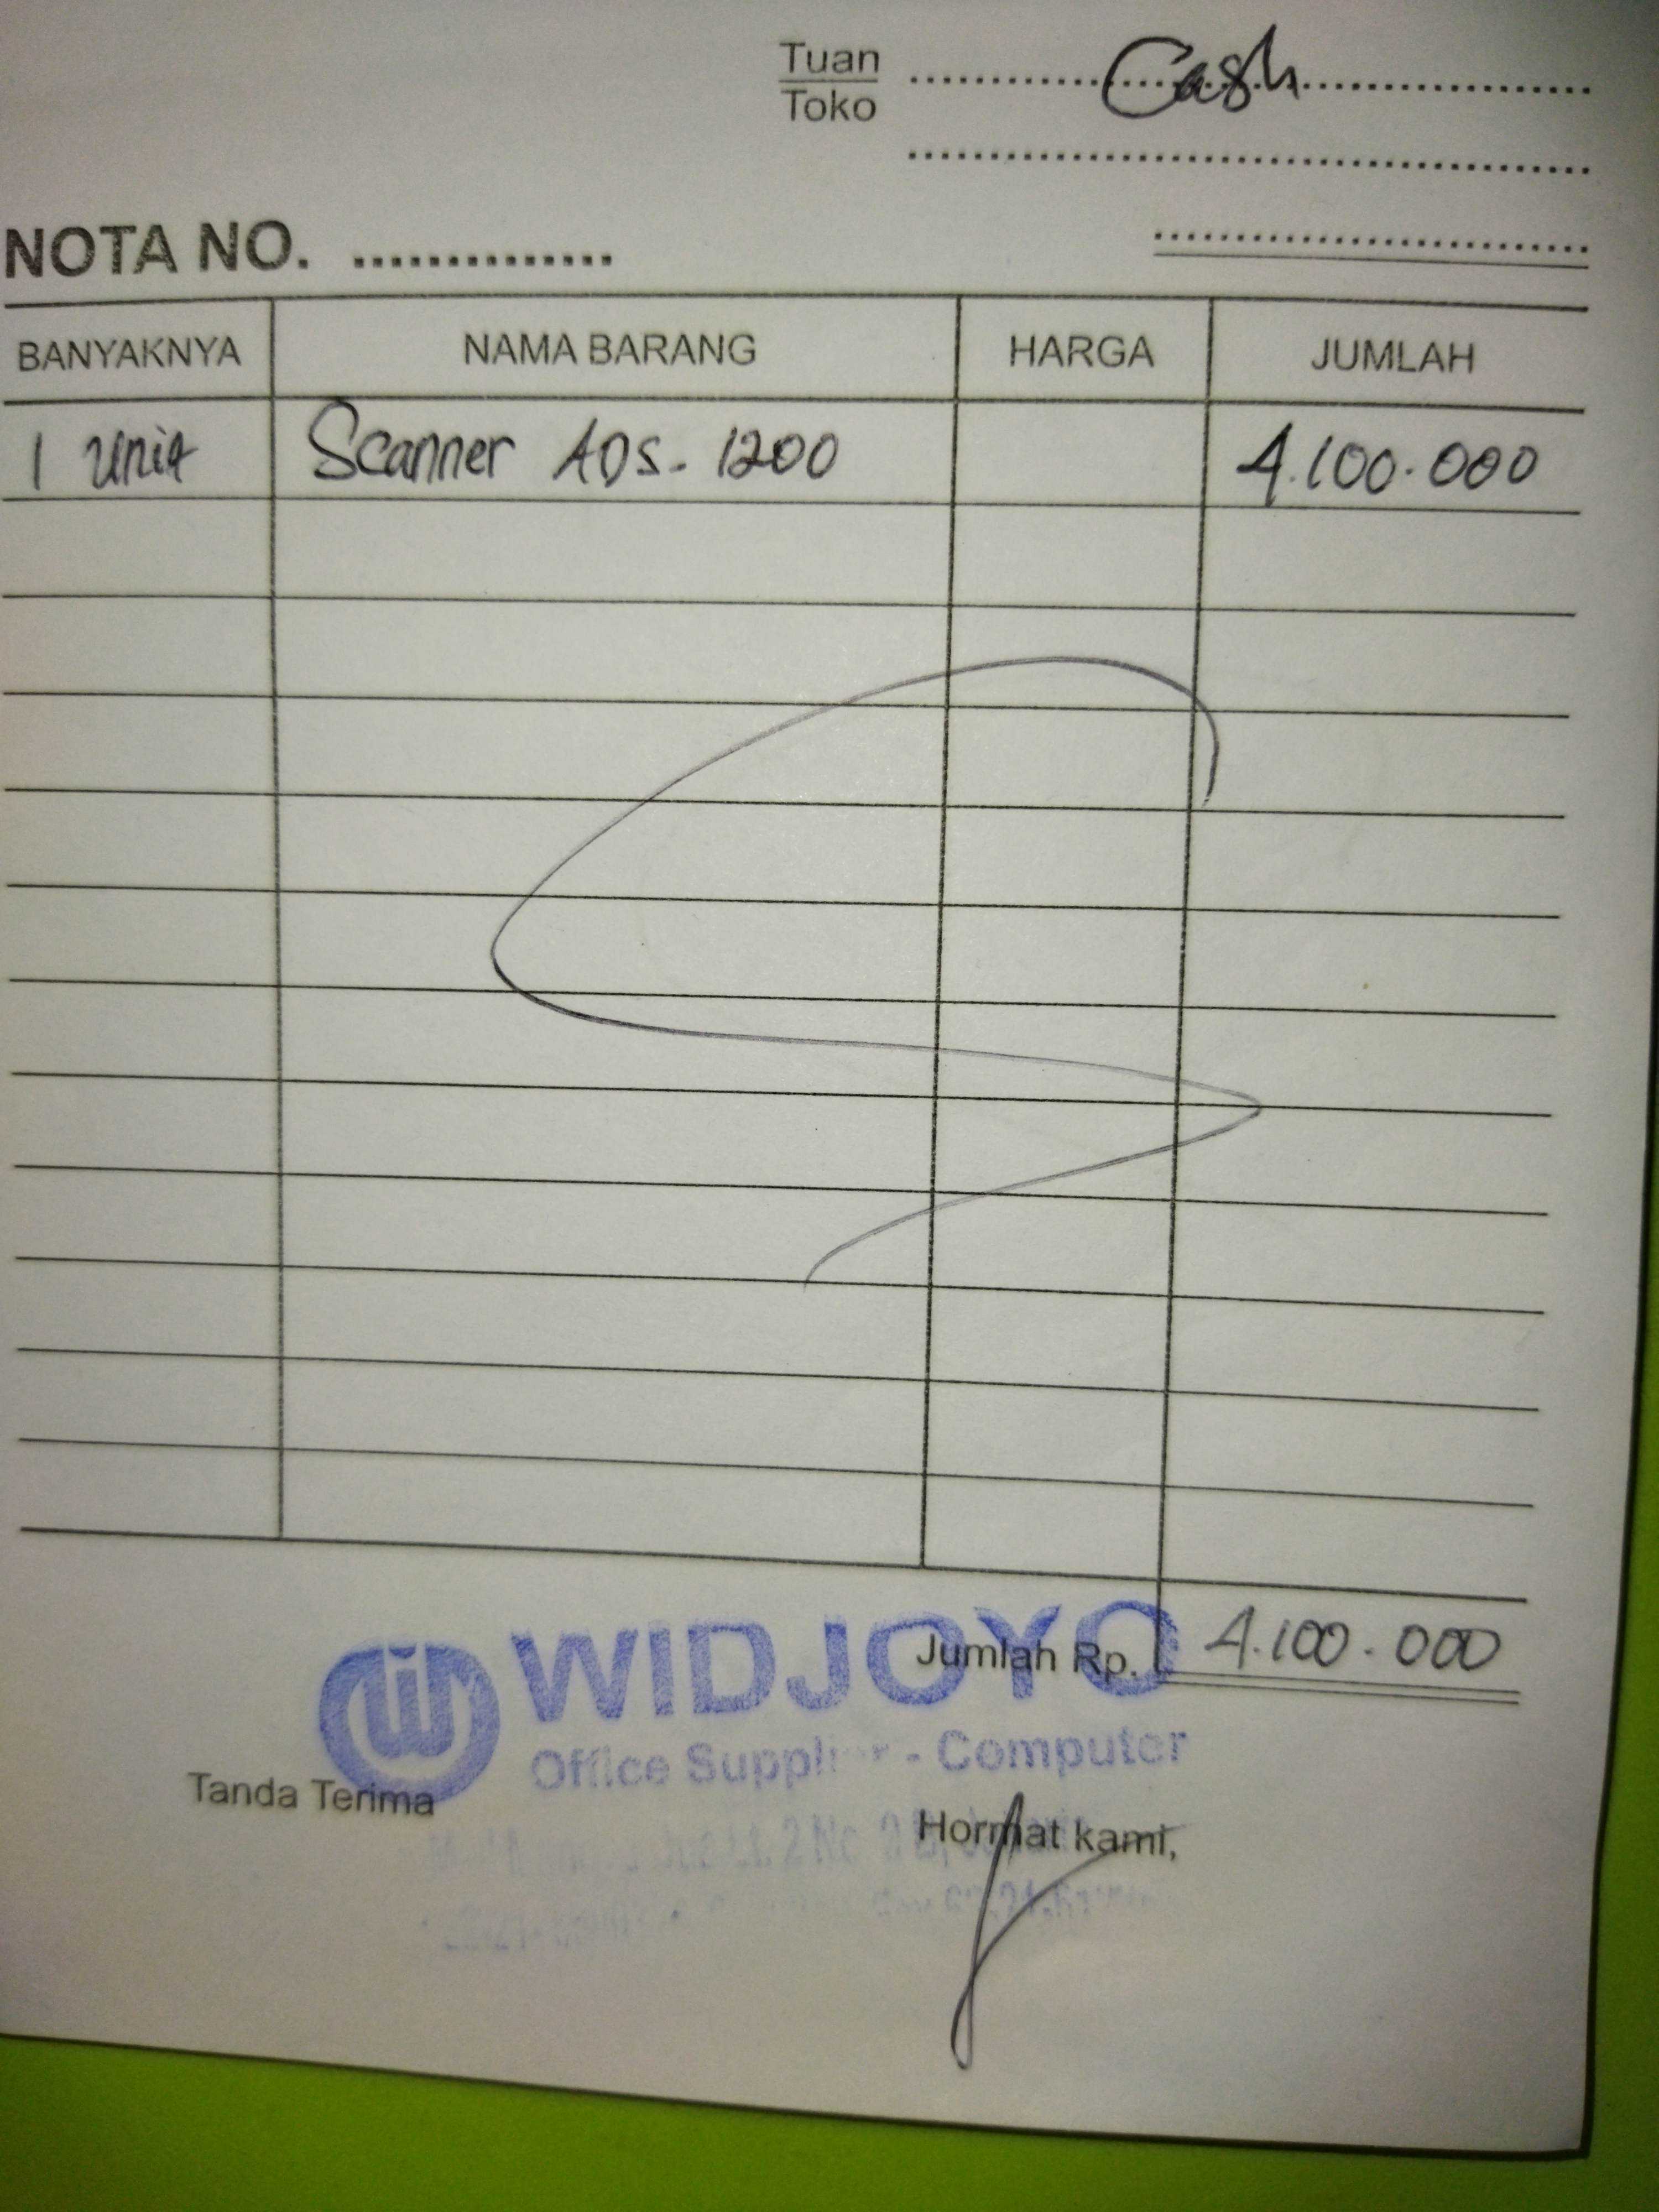 Tuan Cash
Toko
NOTA NO. ..............
BANYAKNYA NAMA BARANG HARGA JUMLAH
1 Unit Scanner ADS-1200 4.100.000
Jumlah Rp. 4.100.000
WIDJOYO
Office Supplier - Computer
Tanda Terima Hormat kami,